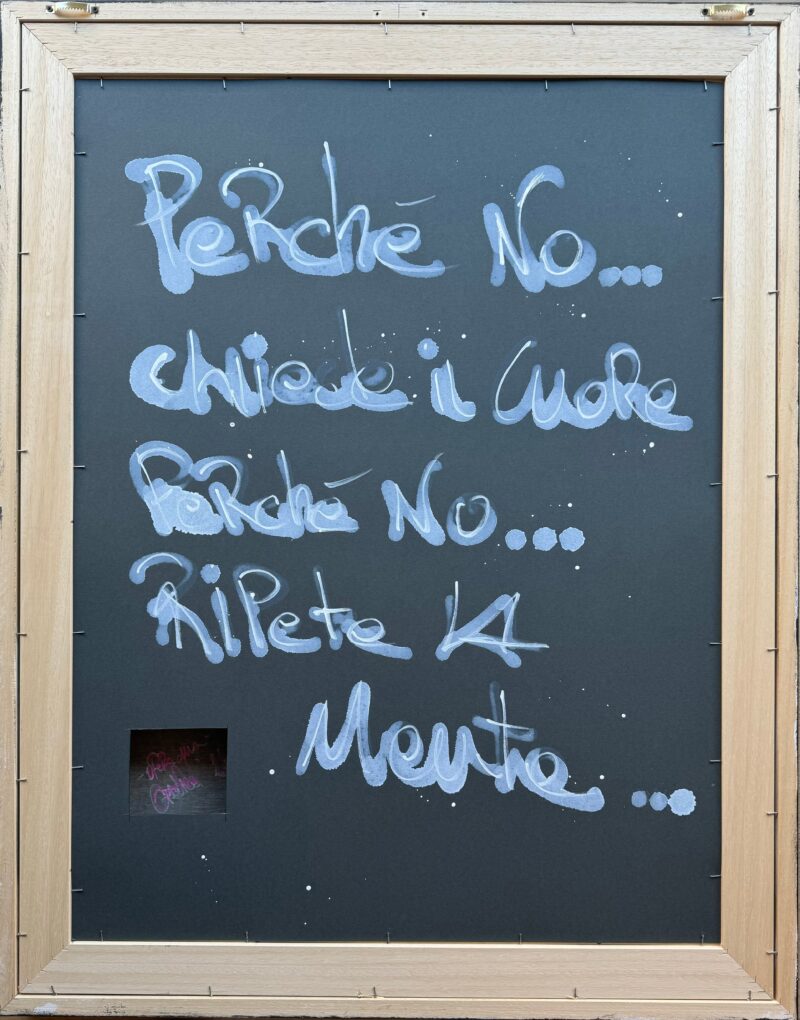 Perché No...
chiede il Cuore
Perché No...
Ripete LA
Mente...